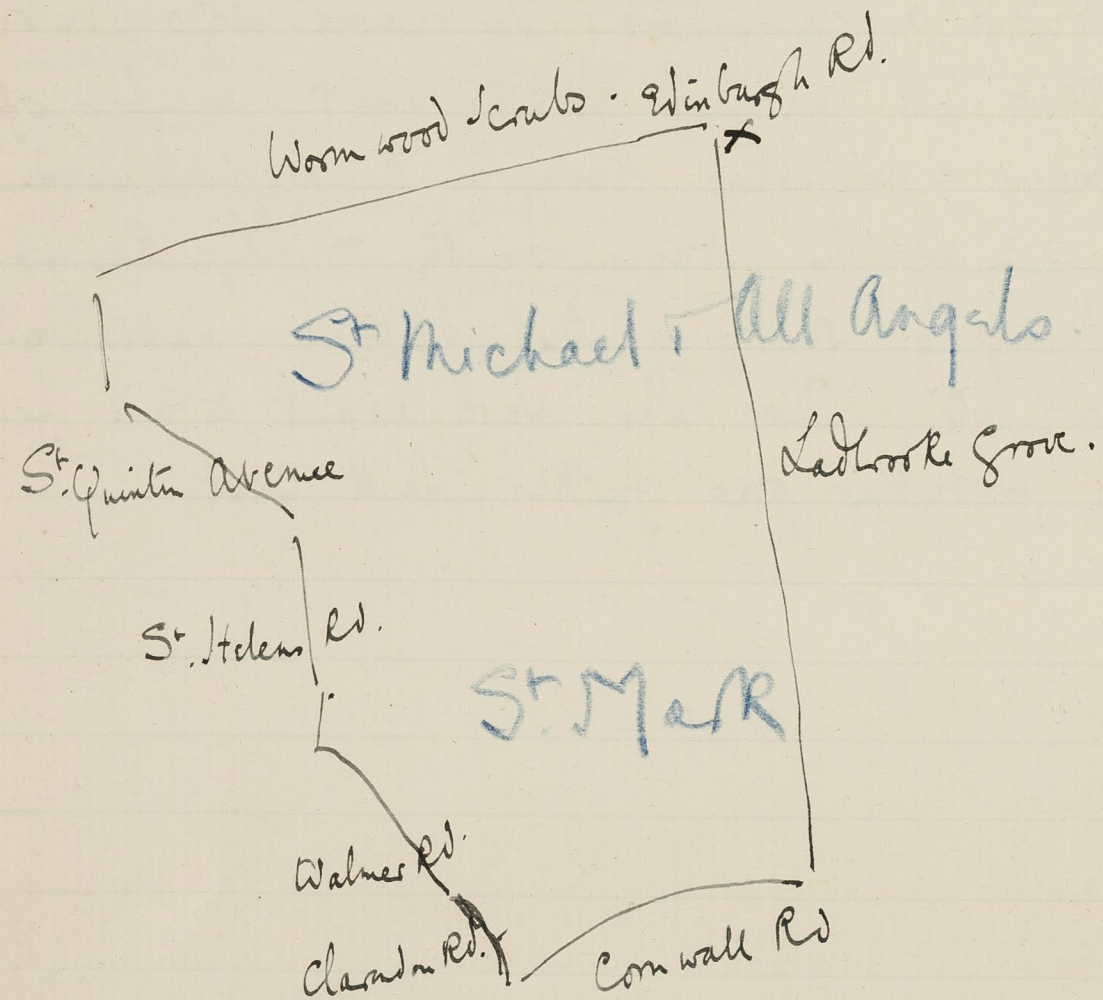 Wormwood Scrubs · Edinburgh Rd.
x
St Michael + All Angels.
Ladbroke Grove.
St. Quintin Avenue
St. Helens Rd.
St. Mark
Walmer Rd.
Clarendon Rd.
Cornwall Rd